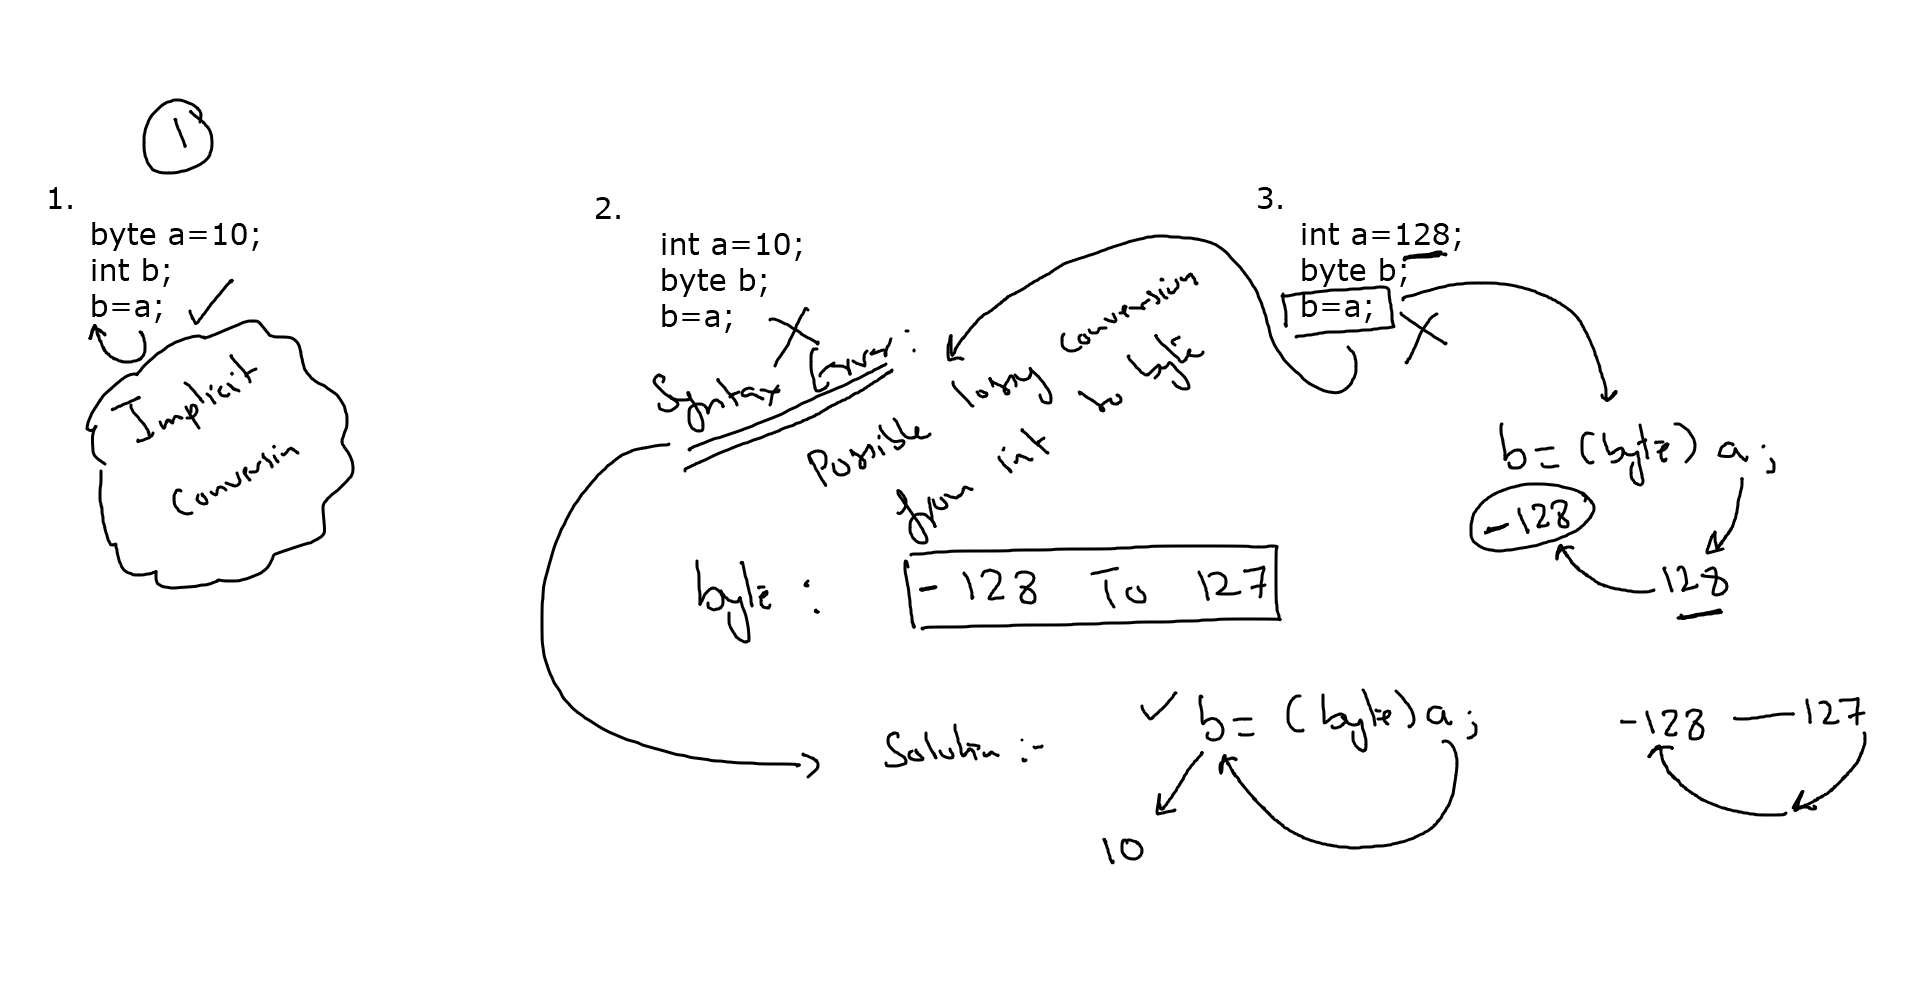 1
1.
byte a=10;
int b;
b=a;
Implicit
Conversin
2.
int a=10;
byte b;
b=a;
Syntax Error:
Possible lossy conversion
from int to byte
byte : -128 To 127
Solution :- b= (byte) a;
10
3.
int a=128;
byte b;
b=a;
b= (byte) a;
-128
128
-128 — 127